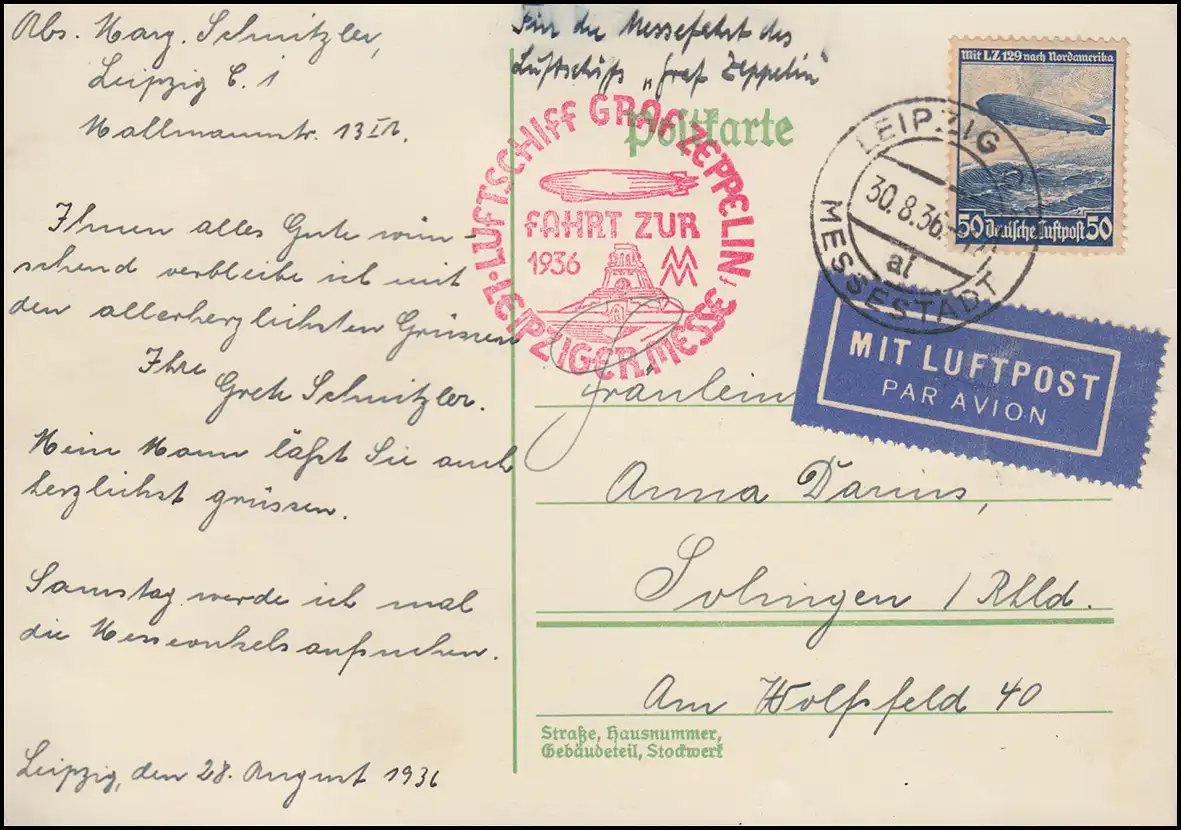 Abs. Marg. Schnitzler,
Leipzig C. 1
Kallmannstr. 13 II r.
Ihnen alles Gute wün-
schend verbleibe ich mit
den allerherzlichsten Grüssen
Ihre
Grete Schnitzler.
Mein Mann läßt Sie auch
herzlichst grüssen.
Samstag werde ich mal
die Messeonkels aufsuchen.
Leipzig, den 28. August 1936
Für die Messefahrt des
Luftschiffs „Graf Zeppelin"
Postkarte
LUFTSCHIFF GRAF ZEPPELIN
FAHRT ZUR
1936 MM
LEIPZIGER MESSE f
Mit LZ 129 nach Nordamerika
50 Deutsche Luftpost 50
LEIPZIG C 2
30.8.36.
al
MESSESTADT
MIT LUFTPOST
PAR AVION
Fräulein
Anna Darius,
Solingen / Rhld.
Am Wolfsfeld 40
Straße, Hausnummer,
Gebäudeteil, Stockwerk